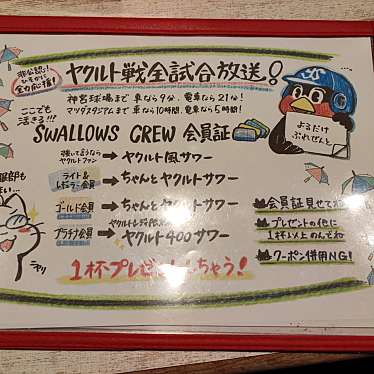 非公認!
ひそかに
全力応援!
ヤクルト戦全試合放送!
神宮球場まで 車なら9分、電車なら21分!
マツダスタジアムまで 車なら10時間、電車なら5時間!
ここでも
活きる!!!
SWALLOWS CREW 会員証
よるだけ
ぷれぜんと
強いて言うなら
ヤクルトファン → ヤクルト風サワー
ライト&
レギュラー会員 → ちゃんとヤクルトサワー
ゴールド会員 → ちゃんとヤクルトサワー
プラチナ会員 → ヤクルト400サワー
服部も
ニヤリ
会員証見せてネ
プレゼントの他に
1杯以上のんでネ
クーポン併用NG!
1杯プレゼントしちゃう!